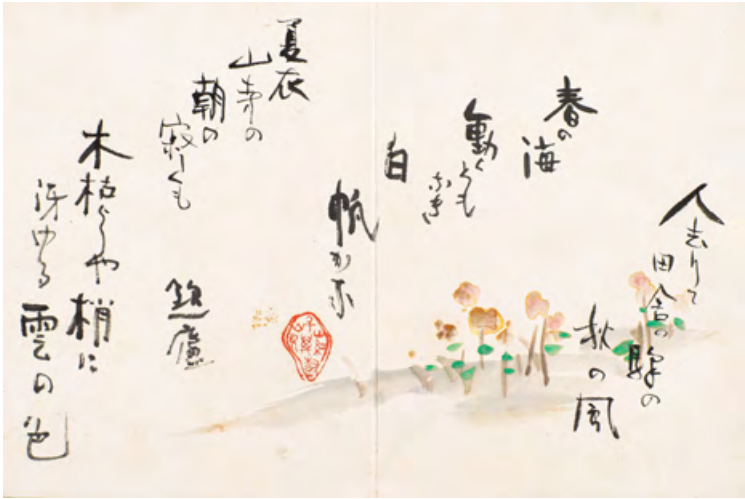 人去りて
田舎の
駅の
秋の風
春の
海
動くとも
なき
白
帆かな
夏衣
山寺の
朝の
寂しくも
木枯らしや
梢に
冴ゆる
雲の色